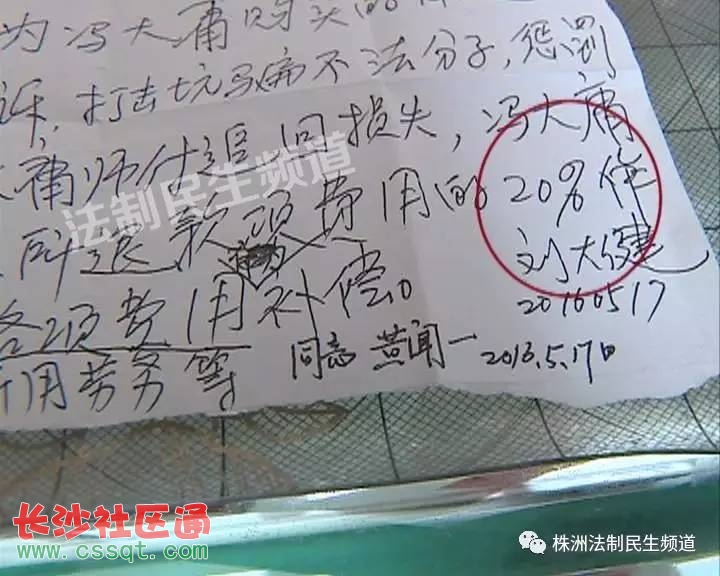 为冯大庸购买的
诉,打击坑骗不法分子,惩罚
庸师付追回损失,冯大庸
所退款项费用的20%作
各项费用补偿。
用劳务等
刘大健
20160517
同意 黄闻一 2016.5.17日
法制民生频道
长沙社区通
www.cssqt.com
株洲法制民生频道